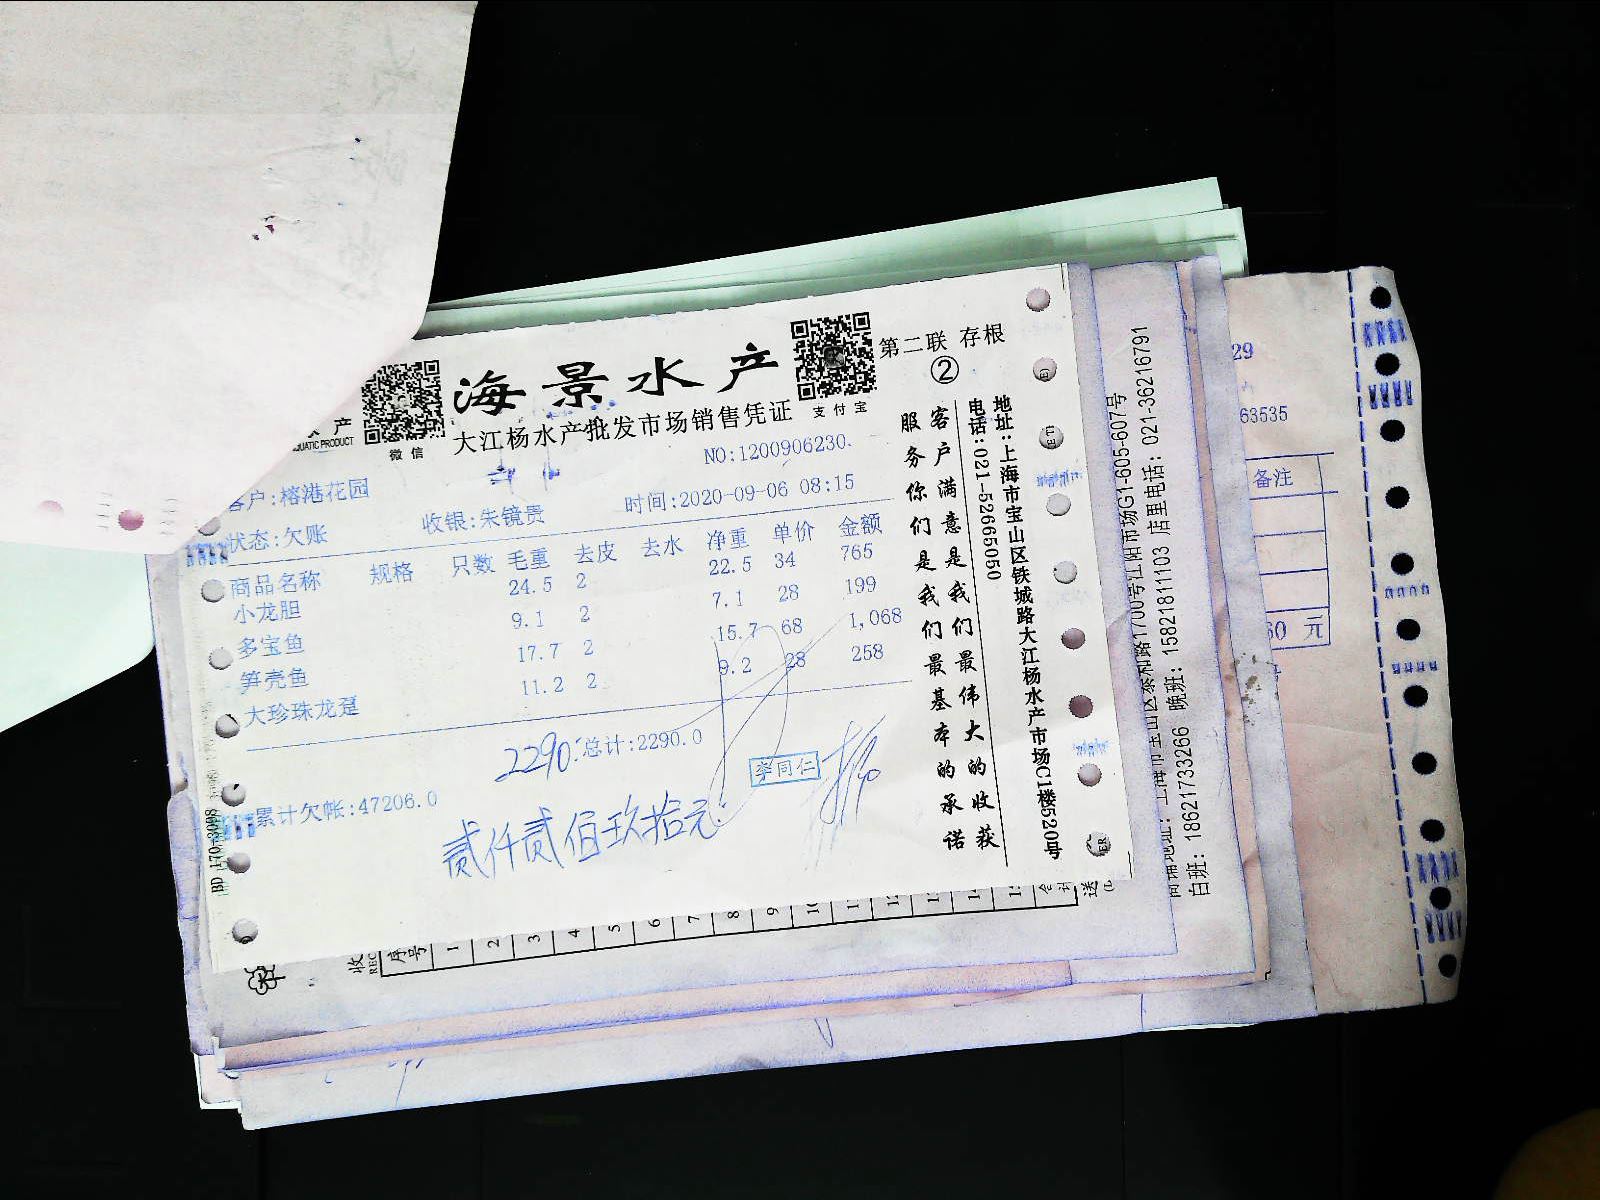 海景水产
第二联 存根
②
微信
支付宝
大江杨水产批发市场销售凭证
NO:1200906230.
客户:榕港花园
收银:朱镜贵
时间:2020-09-06 08:15
状态:欠账
商品名称 规格 只数 毛重 去皮 去水 净重 单价 金额
小龙胆 24.5 2 22.5 34 765
多宝鱼 9.1 2 7.1 28 199
笋壳鱼 17.7 2 15.7 68 1,068
大珍珠龙趸 11.2 2 9.2 28 258
2290.
总计:2290.0
李同仁
累计欠帐:47206.0
贰仟贰佰玖拾元
客户满意是我们最伟大的收获
服务你们是我们最基本的承诺
地址:上海市宝山区铁城路大江杨水产市场C1楼520号
电话:021-52665050
产
QUATIC PRODUCT
BD 170-3098
605-607号
店里电话: 021-36216791
晚班: 15821811103
白班: 18621733266
29
63535
备注
元
收
REC
序号 1 2 3 4 5 6 7 8 9 10 11 12 13 14 15
送